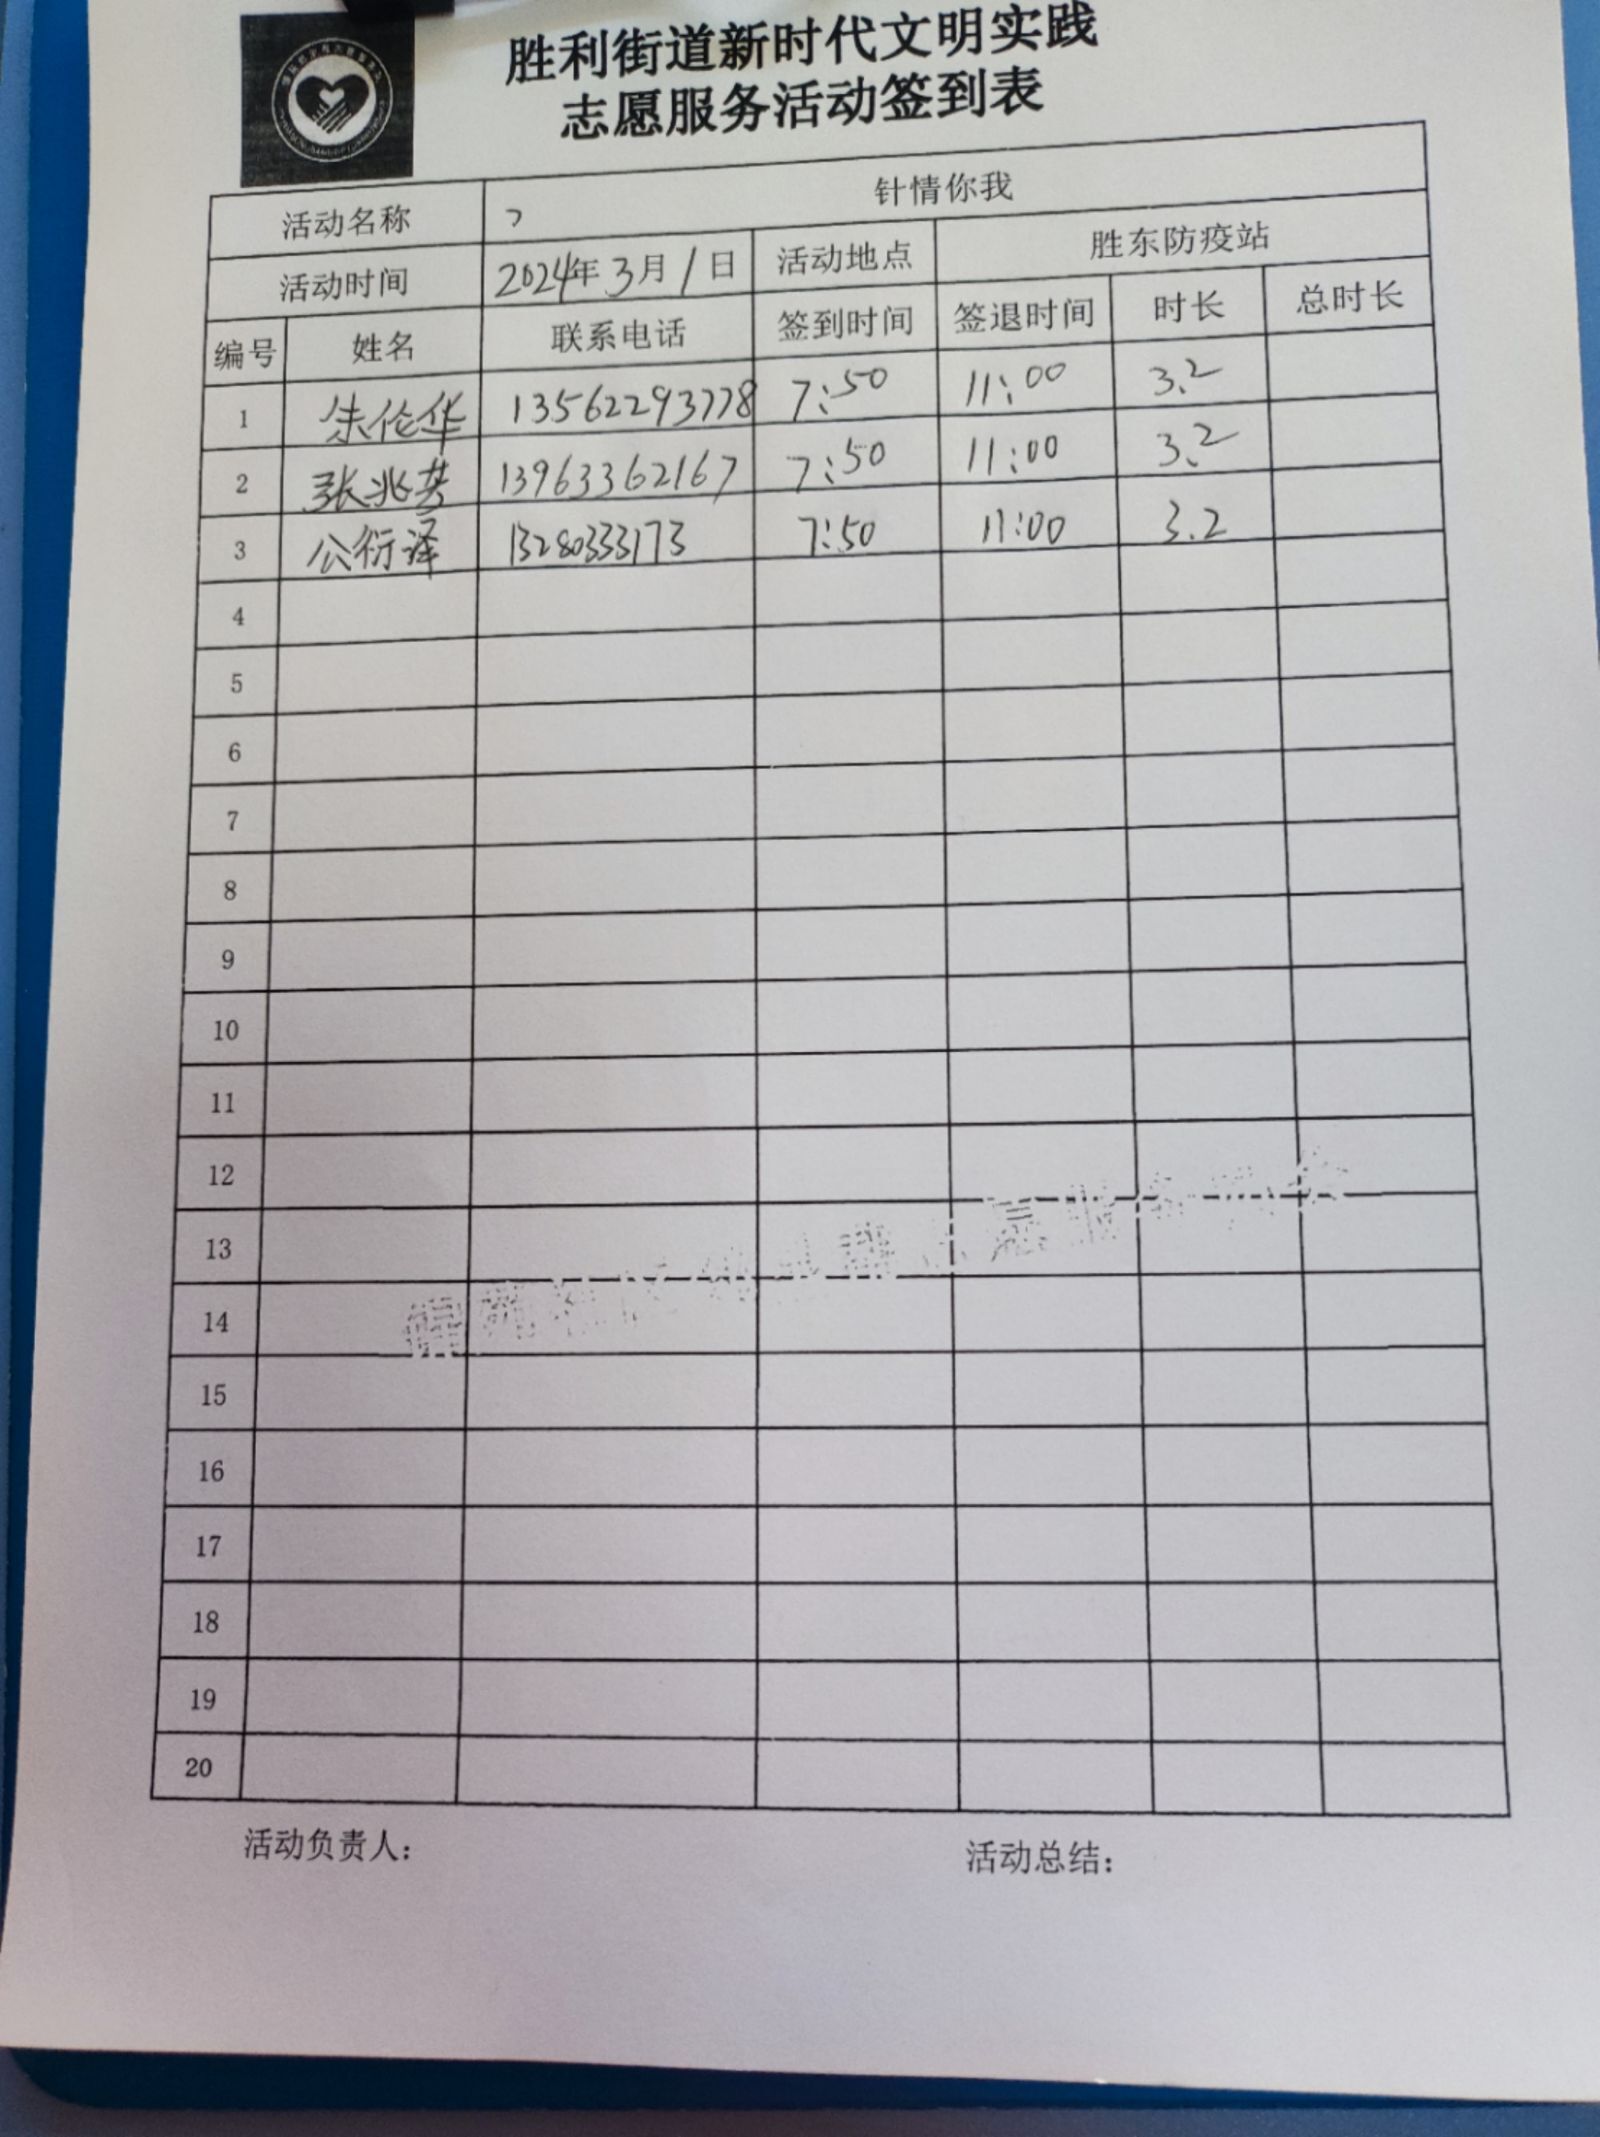 胜利街道新时代文明实践
志愿服务活动签到表
活动名称 针情你我
活动时间 2024年3月1日 活动地点 胜东防疫站
编号 姓名 联系电话 签到时间 签退时间 时长 总时长
1 朱伦华 13562293778 7:50 11:00 3.2
2 张兆芸 13963362167 7:50 11:00 3.2
3 公衍泽 13280333173 7:50 11:00 3.2
4
5
6
7
8
9
10
11
12
13
14
15
16
17
18
19
20
活动负责人: 活动总结: